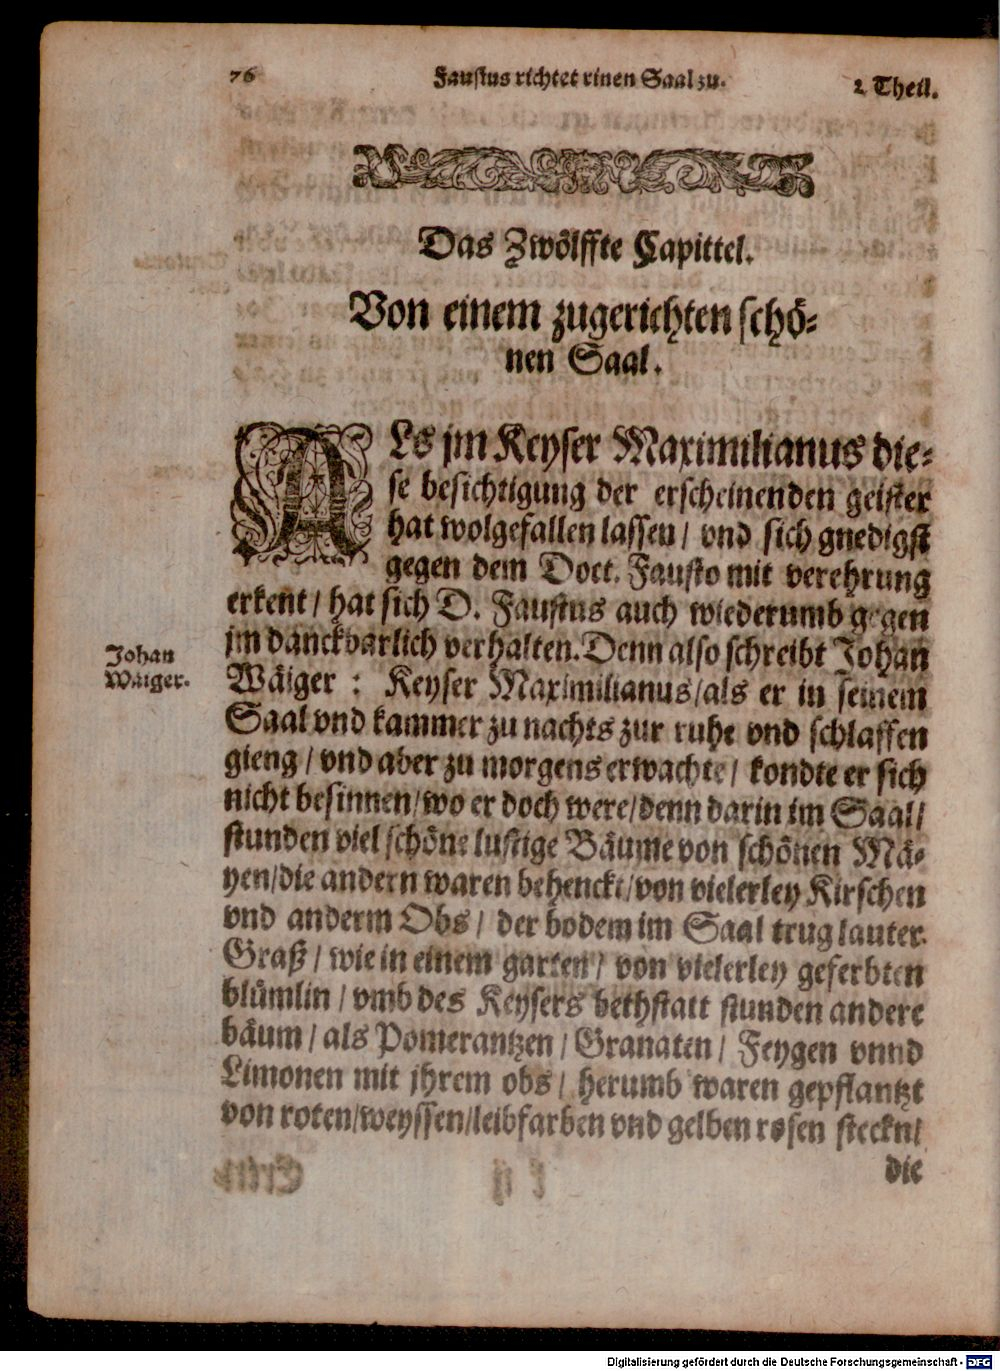 76 Faustus richtet rinen Saal zu. 2. Theil.
Das Zwölffte Capittel.
Von einem zugerichten schö⸗
nen Saal.
ALs jm Keyser Maximilianus die⸗
se besichtigung der erscheinenden geister
hat wolgefallen lassen / vnd sich gnedigst
gegen dem Doct. Fausto mit verehrung
erkent / hat sich D. Faustus auch wiederumb gegen
jm danckbarlich verhalten. Denn also schreibt Johan
Johan
Wäiger.
Wäiger : Keyser Maximilianus / als er in seinem
Saal vnd kammer zu nachts zur ruhe vnd schlaffen
gieng / vnd aber zu morgens erwachte / kondte er sich
nicht besinnen / wo er doch were / denn darin im Saal /
stunden viel schöne lustige Bäume von schönen Mä⸗
yen / die andern waren behenckt / von vielerley Kirschen
vnd anderm Obs / der bodem im Saal trug lauter
Graß / wie in einem garten / von vielerley geferbten
blümlin / vmb des Keysers bethstatt stunden andere
bäum / als Pomerantzen / Granaten / Feygen vnnd
Limonen mit jhrem obs / herumb waren gepflantzt
von roten / weyssen / leibfarben vnd gelben rosen steckn /
die
Digitalisierung gefördert durch die Deutsche Forschungsgemeinschaft - DFG